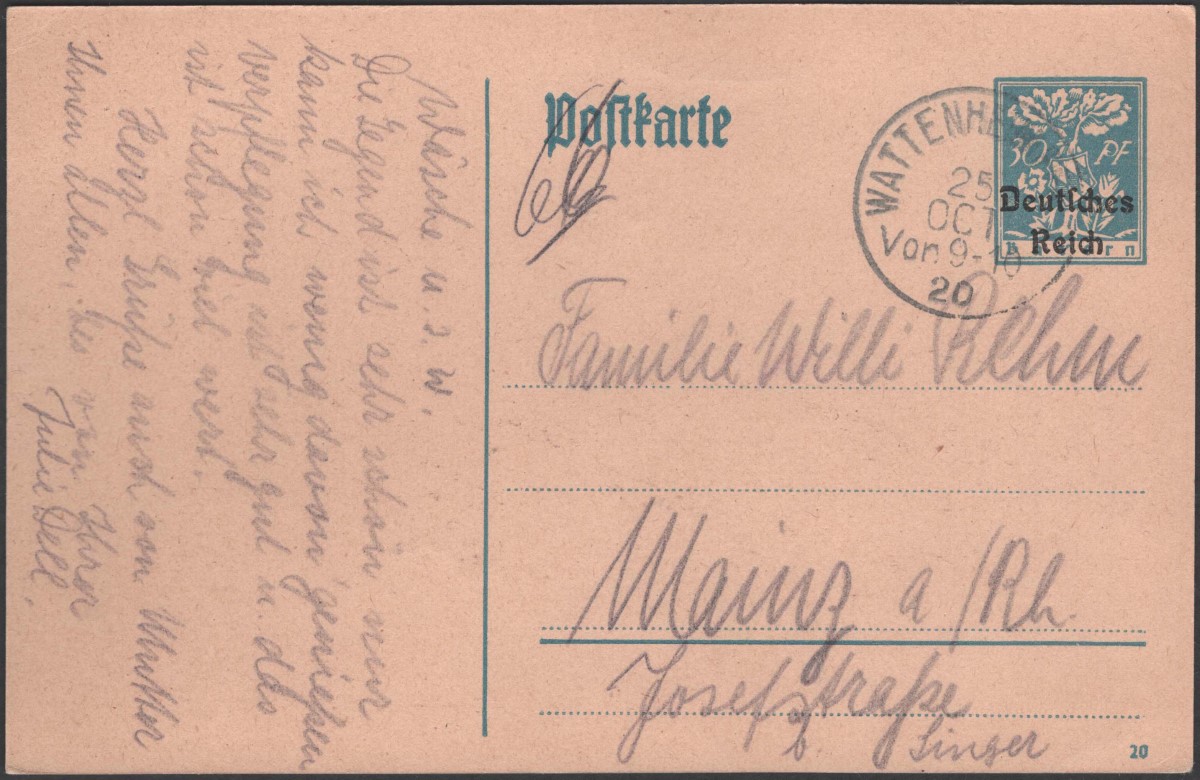 Wäsche u. s. w.
Die Gegend ist sehr schön nur
kann ich wenig davon genießen
verpflegung ist sehr gut u. das
ist schon viel wert.
Herzl Grüße auch von Mutter
Ihnen allen, bes von Ihrer
Julie Dell.
Postkarte
66
WATTENHE
25
OCT
Vor 9-10
20
30 PF
Deutsches
Reich
Bayern
Familie Willi Rehm
Mainz a/Rh.
Josefstraße
b. Singer
20